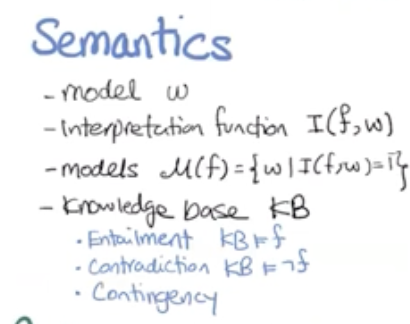 Semantics
- model w
- Interpretation function I(f,w)
- models M(f)={w|I(f,w)=1}
- Knowledge base KB
• Entailment KB⊨f
• Contradiction KB⊨¬f
• Contingency